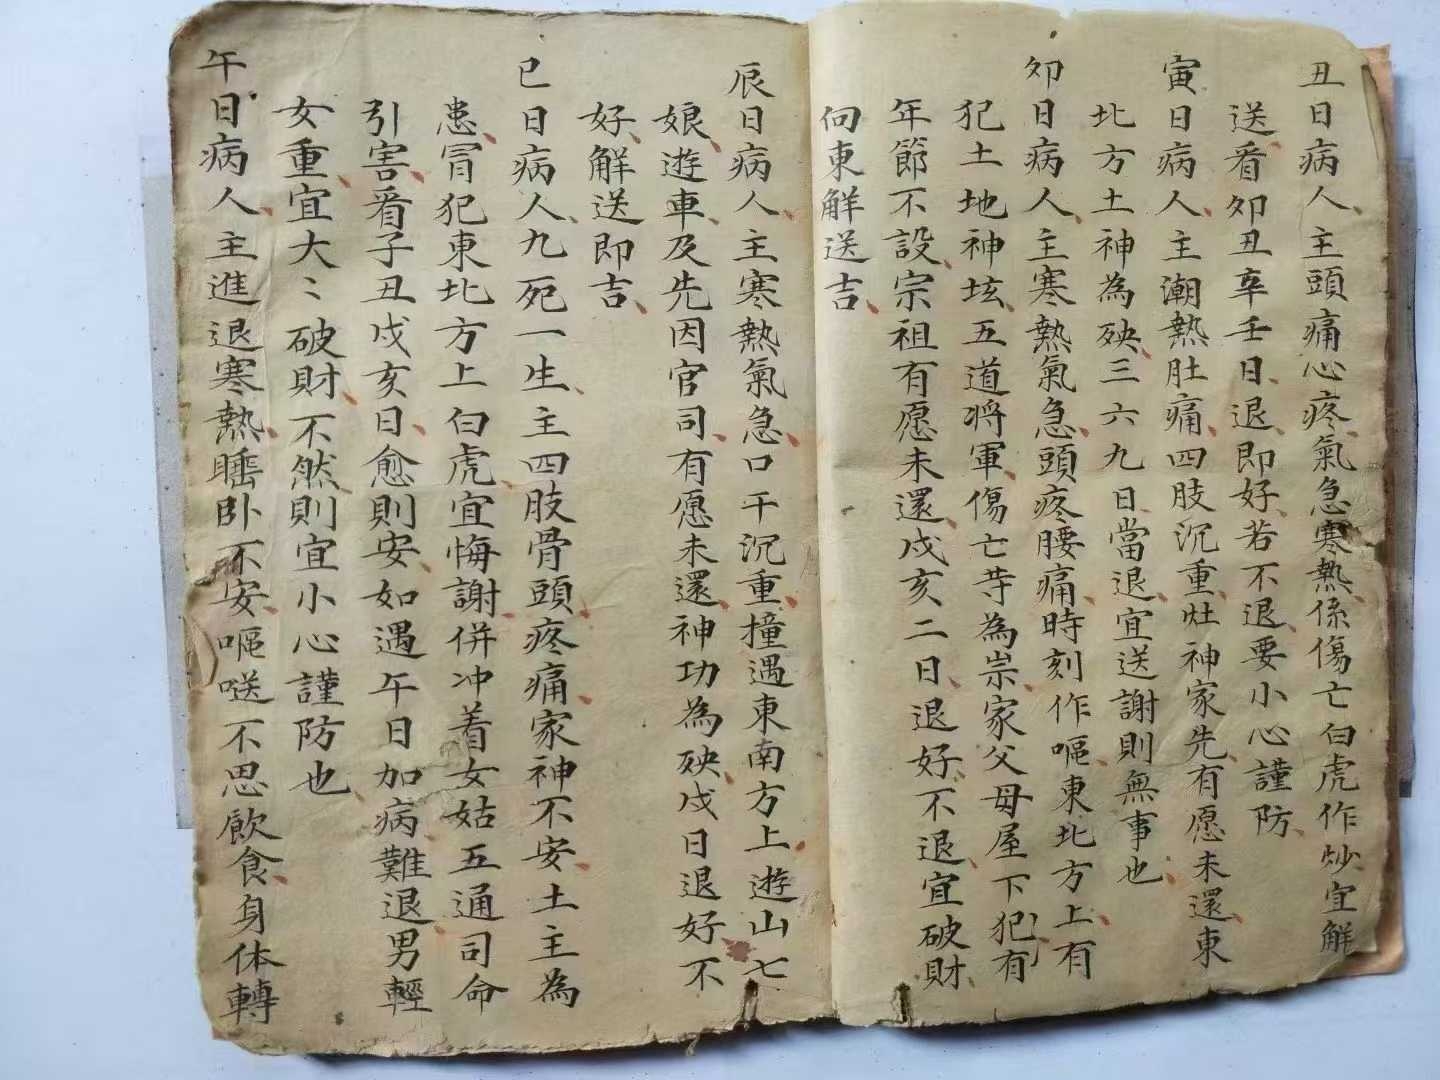 丑日病人、主頭痛心疼、氣急寒熱、係傷亡白虎作炒、宜解
送、看卯丑辛壬日、退即好、若不退、要小心謹防、
寅日病人、主潮熱肚痛、四肢沉重、灶神家先、有愿未還、東
北方土神為殃、三六九日當退、宜送謝則無事也、
卯日病人、主寒熱氣急、頭疼腰痛、時刻作嘔、東北方上、有
犯土地神坛、五道将軍、傷亡䓁為祟、家父母屋下犯、有
年節不設、宗祖有愿未還、戌亥二日、退好、不退、宜破財、
向東解送吉、
辰日病人、主寒熱氣急、口干沉重、撞遇東南方上、遊山七
娘、遊車、及先因官司、有愿未還、神功為殃、戌日退好、不
好、解送即吉、
巳日病人、九死一生、主四肢骨頭疼痛、家神不安、土主為
患、冒犯東北方上白虎、宜悔謝、併冲着女姑五通司命
引害、看子丑戌亥日、愈則安、如遇午日加病難退、男輕
女重、宜大〻破財、不然則宜小心謹防也
午日病人、主進退寒熱、睡卧不安、嘔𠹌不思飲食、身体轉